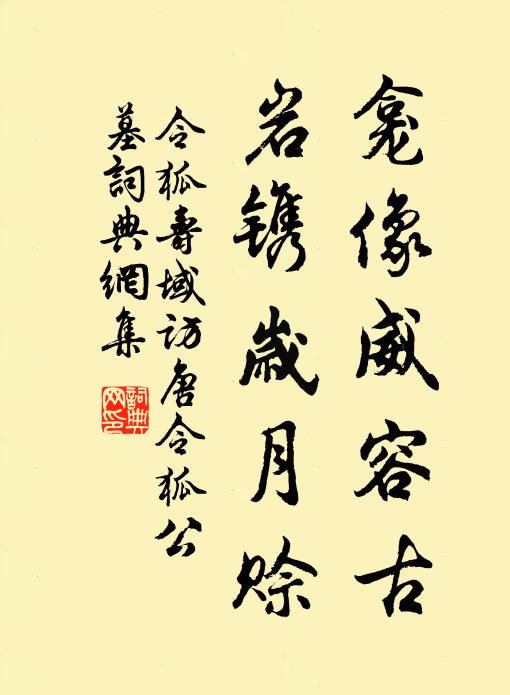 龛像威容古
岩镌歲月赊
令狐壽域访唐令狐公
墓詞典網集
詞典网印